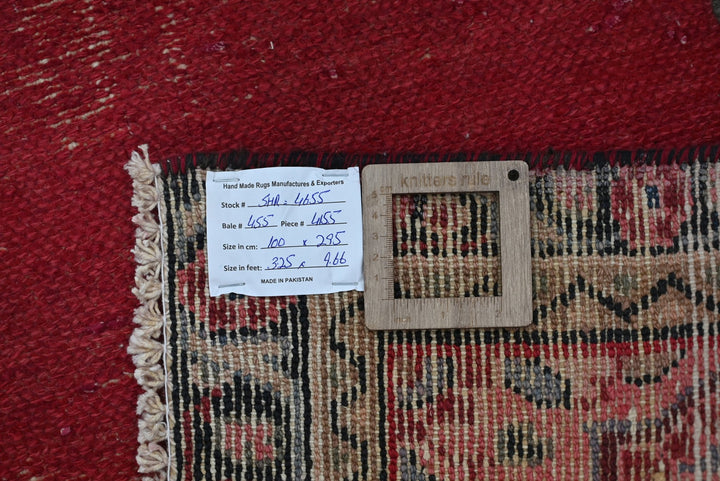 Hand Made Rugs Manufactures & Exporters
Stock # SHR - 4655
Bale # 455 Piece # 4655
Size in cm: 100 x 295
Size in feet: 3.25 x 9.66
MADE IN PAKISTAN
knitters rule
5 cm
4
2
inch 1 2